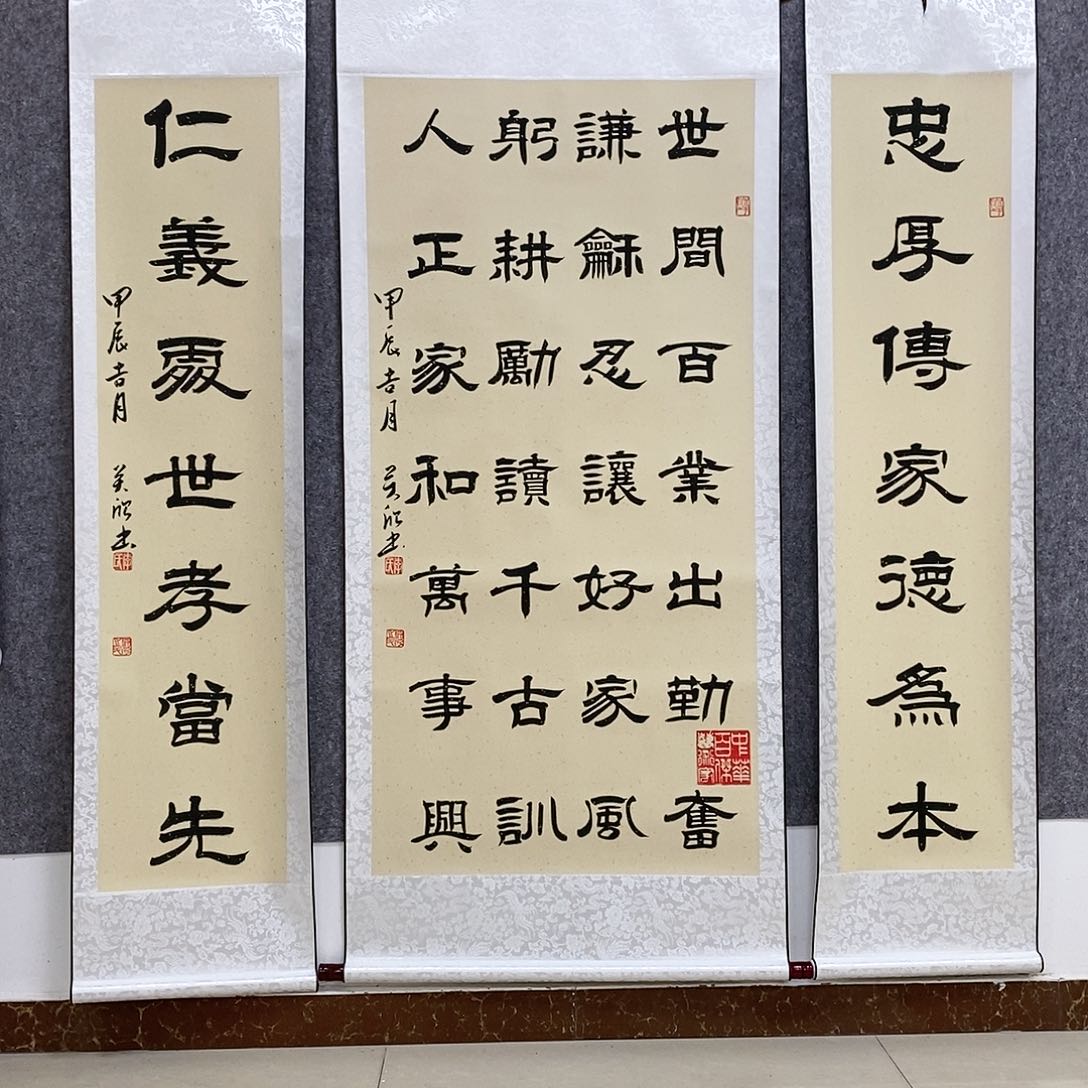 忠厚傳家德為本
世間百業出勤奮
謙龢忍讓好家風
躬耕勵讀千古訓
人正家和萬事興
甲辰吉月
中華百傑
仁義處世孝當先
甲辰吉月